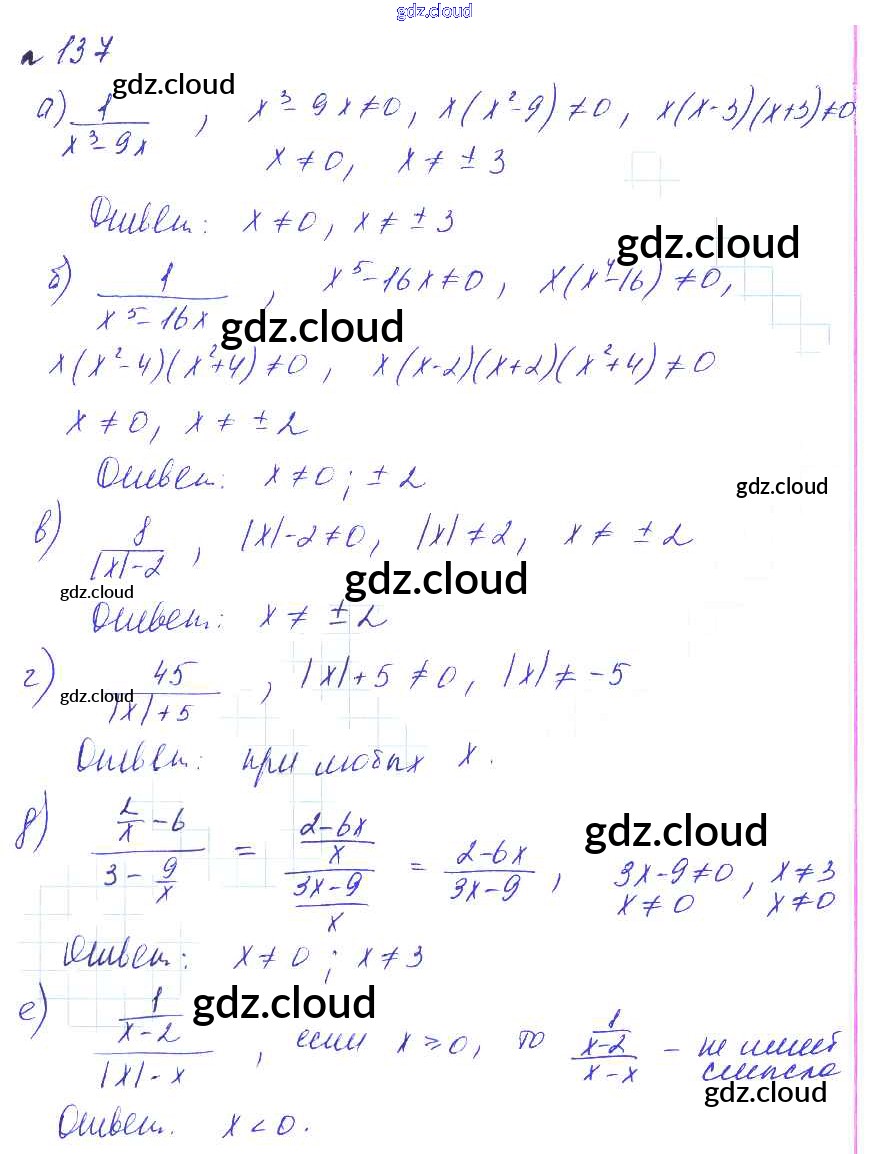 gdz.cloud
№ 137
gdz.cloud
а) 1/(x³-9x), x³-9x≠0, x(x²-9)≠0, x(x-3)(x+3)≠0
x≠0, x≠±3
Ответ: x≠0, x≠±3
gdz.cloud
б) 1/(x⁵-16x), x⁵-16x≠0, x(x⁴-16)≠0,
gdz.cloud
x(x²-4)(x²+4)≠0, x(x-2)(x+2)(x²+4)≠0
x≠0, x≠±2
Ответ: x≠0; ±2
gdz.cloud
в) 8/(|x|-2), |x|-2≠0, |x|≠2, x≠±2
gdz.cloud
gdz.cloud
Ответ: x≠±2
г) 45/(|x|+5), |x|+5≠0, |x|≠-5
gdz.cloud
Ответ: при любых x.
gdz.cloud
д) (2/x-6)/(3-9/x) = ((2-6x)/x)/((3x-9)/x) = (2-6x)/(3x-9), 3x-9≠0, x≠3
x≠0 x≠0
Ответ: x≠0; x≠3
gdz.cloud
е) (1/(x-2))/(|x|-x), если x≥0, то (1/(x-2))/(x-x) - не имеет
смысла
gdz.cloud
Ответ. x<0.